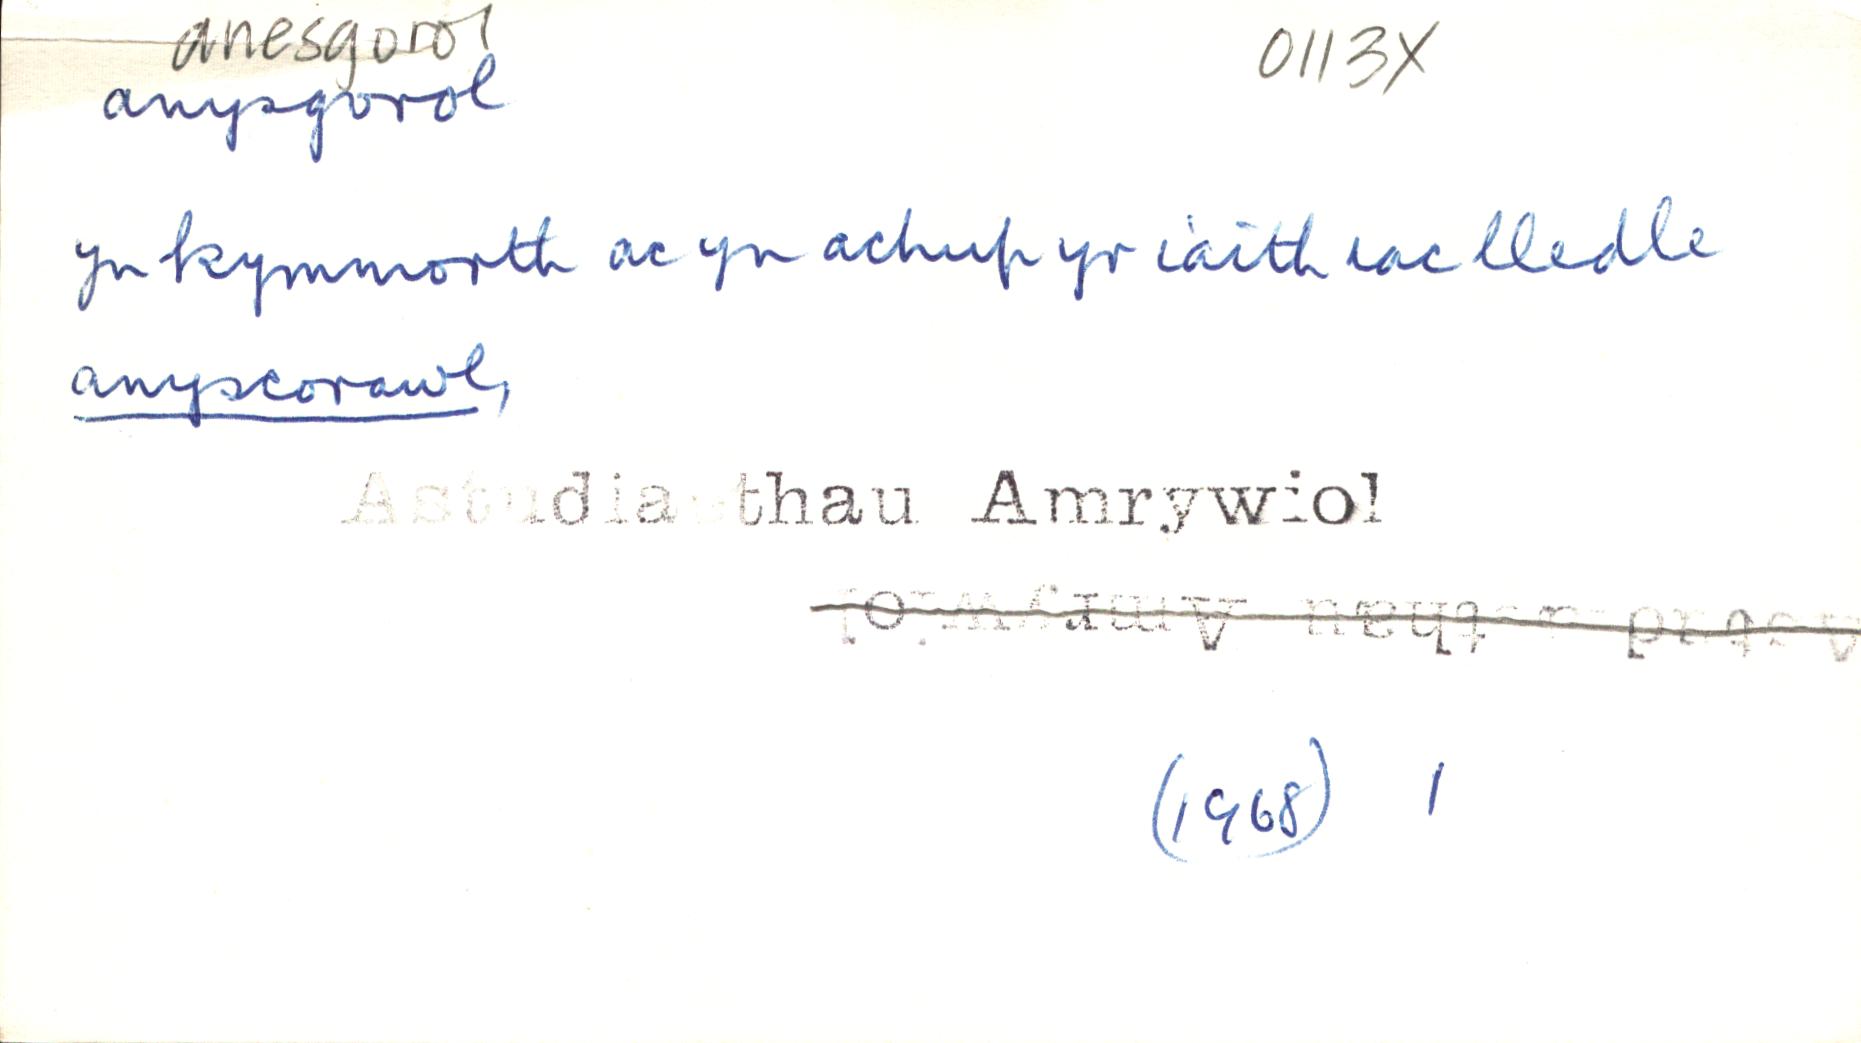 anesgorol
0113X
anysgorol
yn kymmorth ac yn achup yr iaith rac lledle
anyscorawl,
Astudiaethau Amrywiol
Astudiaethau Amrywiol
(1968) 1